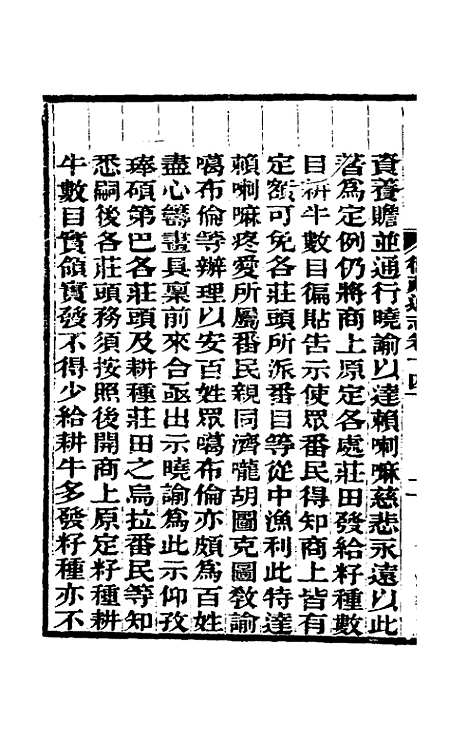 資養贍並通行曉諭以達賴喇嘛慈悲永遠以此
著為定例仍將商上原定各處莊田發給籽種數
目耕牛數目徧貼告示使眾番民得知商上皆有
定額可免各莊頭所派番目等從中漁利此特達
賴喇嘛疼愛所屬番民親同濟嚨胡圖克圖敎諭
噶布倫等辦理以安百姓眾噶布倫亦頗為百姓
盡心籌畫具稟前來合亟出示曉諭為此示仰孜
琫碩第巴各莊頭及耕種莊田之烏拉番民等知
悉嗣後各莊頭務須按照後開商上原定籽種耕
牛數目實領實發不得少給耕牛多發籽種亦不